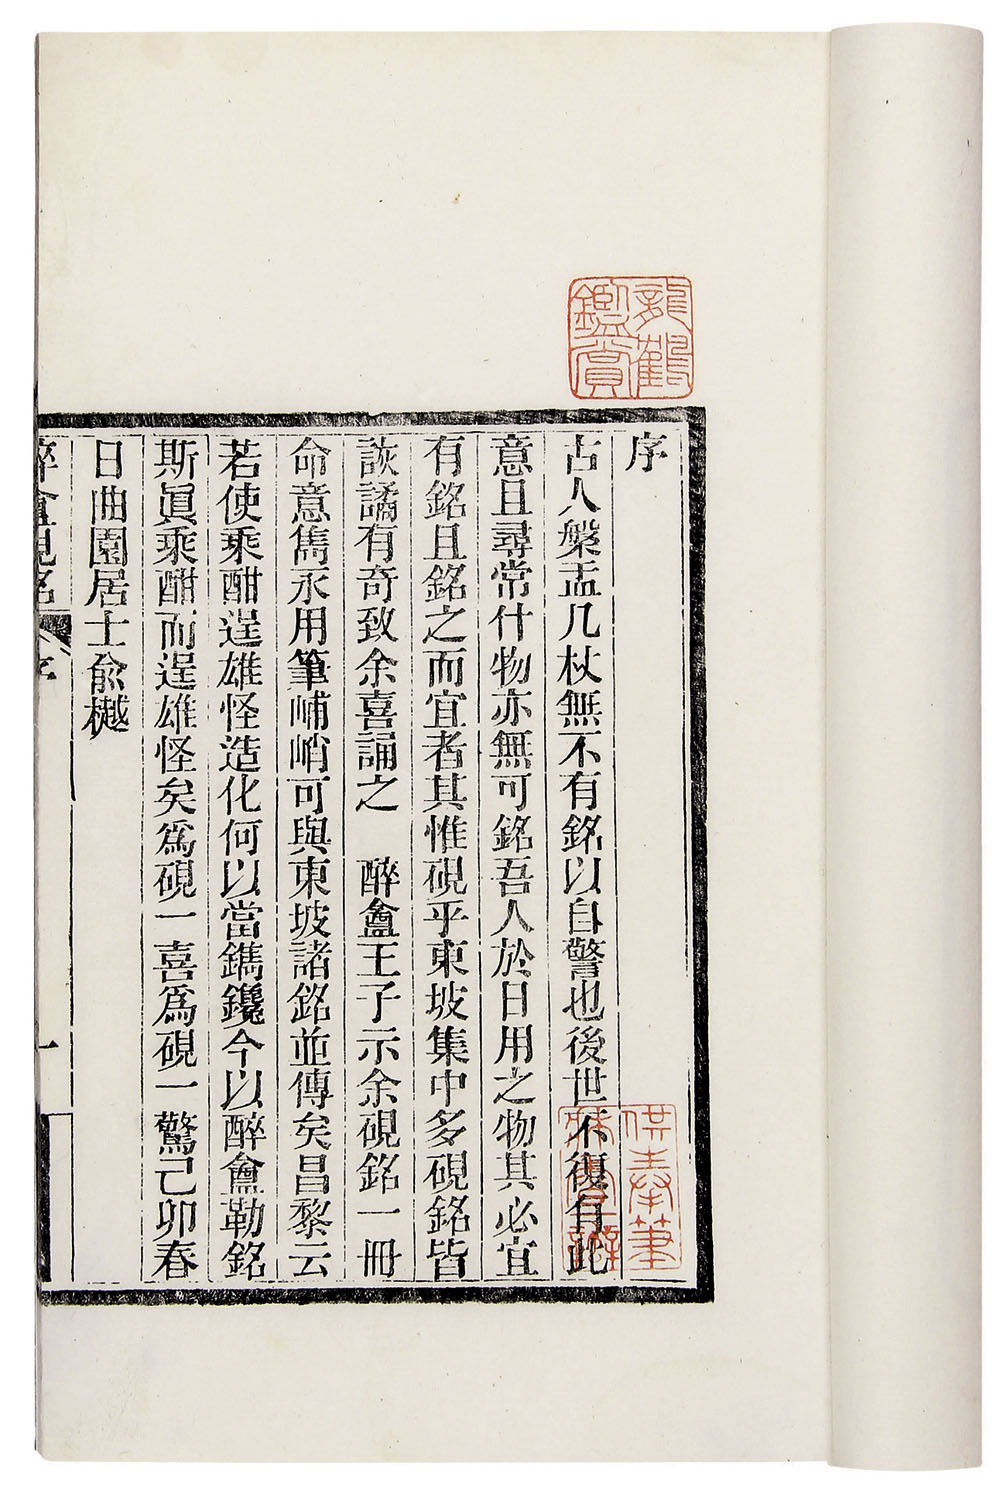 龍鶴
鑑賞
序
古人槃盂几杖無不有銘以自警也後世不復有此
意且尋常什物亦無可銘吾人於日用之物其必宜
有銘且銘之而宜者其惟硯乎東坡集中多硯銘皆
詼譎有奇致余喜誦之　醉盦王子示余硯銘一冊
命意雋永用筆峬峭可與東坡諸銘並傳矣昌黎云
若使乘酣逞雄怪造化何以當鐫鑱今以醉盦勒銘
斯眞乘酣而逞雄怪矣爲硯一喜爲硯一驚己卯春
日曲園居士俞樾
醉盦硯銘
序
一
供奉筆